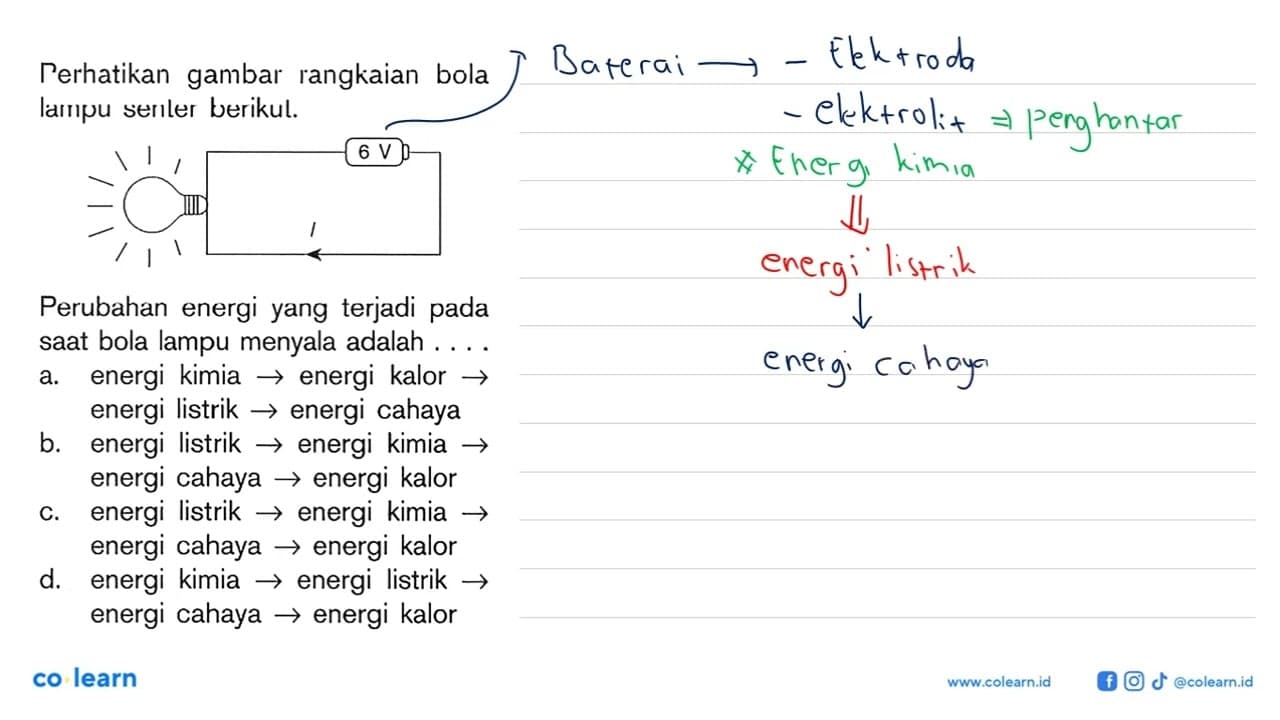 Perhatikan gambar rangkaian bola
lampu senter berikut.
6 V
I
Perubahan energi yang terjadi pada
saat bola lampu menyala adalah . . . .
a. energi kimia → energi kalor →
energi listrik → energi cahaya
b. energi listrik → energi kimia →
energi cahaya → energi kalor
c. energi listrik → energi kimia →
energi cahaya → energi kalor
d. energi kimia → energi listrik →
energi cahaya → energi kalor
Baterai → - Elektroda
- elektrolit ⇒ penghantar
* Energi kimia
⇓
energi listrik
↓
energi cahaya
co learn
www.colearn.id
@colearn.id